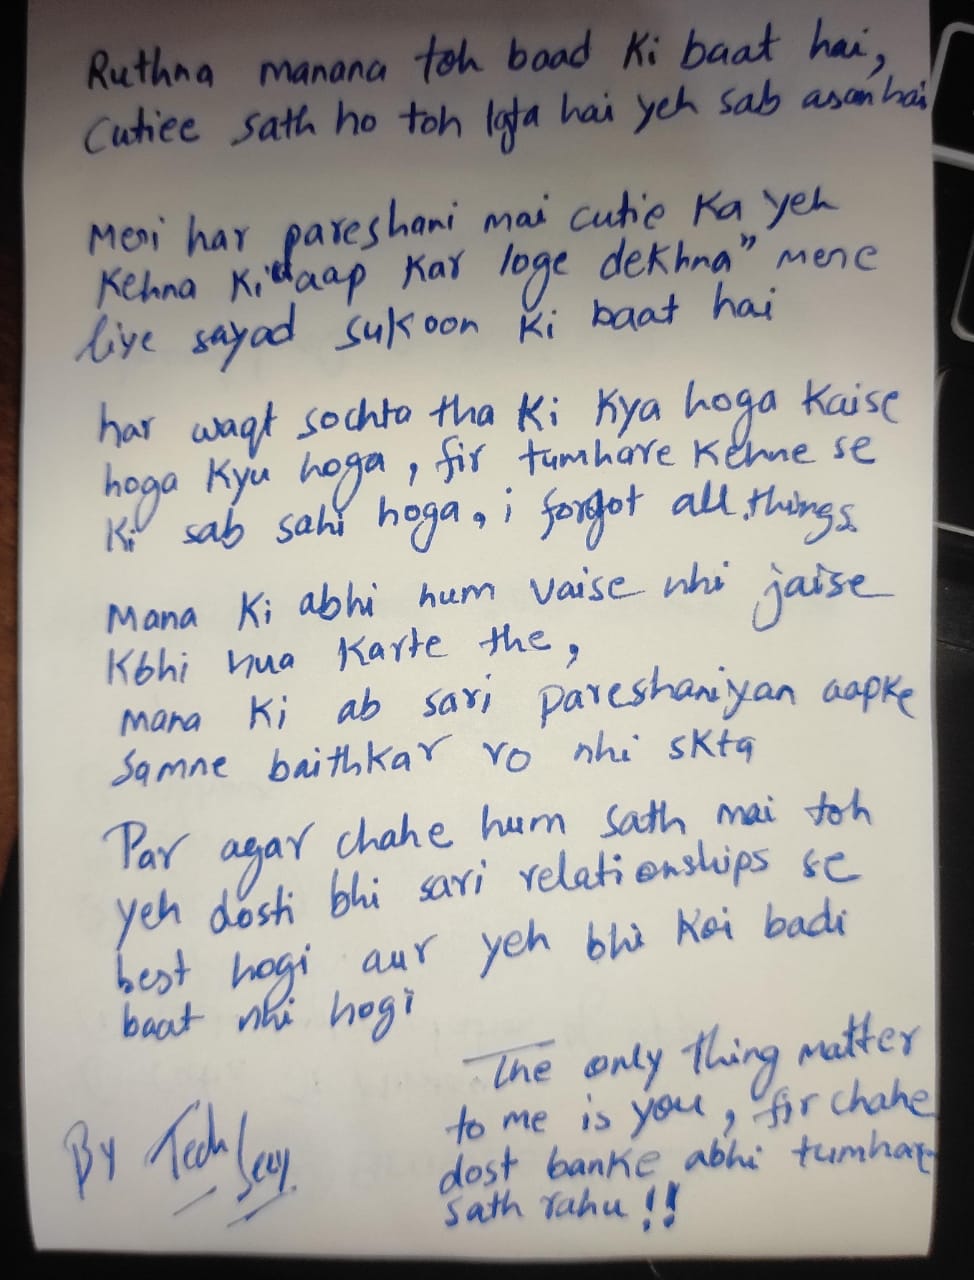 Ruthna manana toh baad Ki baat hai,
Cutiee sath ho toh lgta hai yeh sab asan hai
Meri har pareshani mai cutie Ka yeh
Kehna Ki "aap Kar loge dekhna" mere
liye sayad sukoon Ki baat hai
har waqt sochta tha Ki Kya hoga Kaise
hoga Kyu hoga, fir tumhare Kehne se
Ki sab sahi hoga, i forgot all things
Mana Ki abhi hum vaise nhi jaise
Kbhi hua Karte the,
mana Ki ab sari pareshaniyan aapke
Samne baithkar ro nhi skta
Par agar chahe hum sath mai toh
yeh dosti bhi sari relationships se
best hogi aur yeh bhi Koi badi
baat nhi hogi
The only thing matter
to me is you, fir chahe
dost banke abhi tumhare
sath rahu !!
By Tech